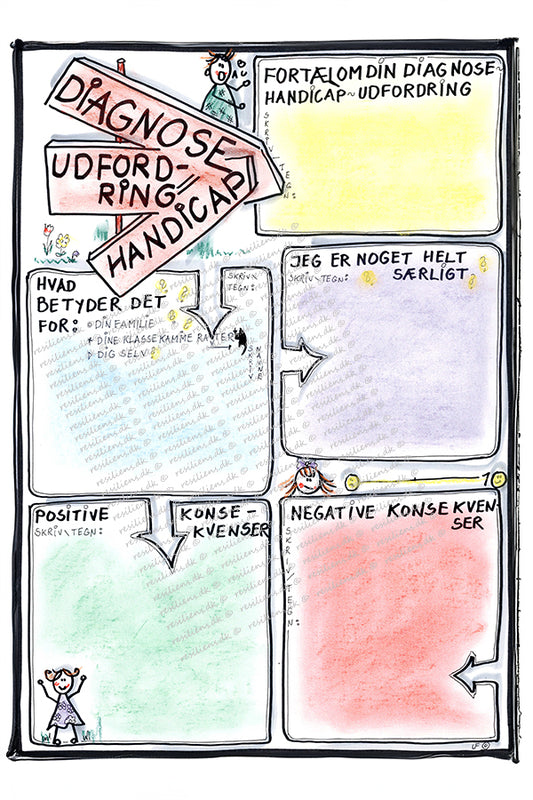 DIAGNOSE
UDFORD-
RING
HANDICAP
AU
FORTÆL OM DIN DIAGNOSE~
HANDICAP~UDFORDRING
SKRIV\TEGN:
HVAD
BETYDER DET
FOR:
DIN FAMILIE
DINE KLASSEKAMMERATER
DIG SELV
SKRIV\
TEGN:
SKRIV
NAVNE
JEG ER NOGET HELT
SÆRLIGT
SKRIV\TEGN:
1
10
POSITIVE KONSE-
KVENSER
SKRIV\TEGN:
NEGATIVE KONSEKVEN-
SER
SKRIV\TEGN:
resiliens.dk ©
UF ©